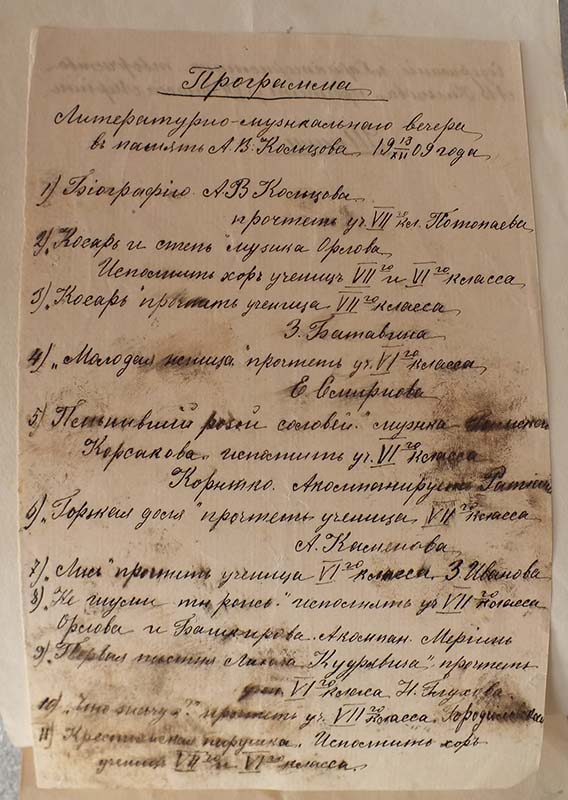 Программа
Литературно-музыкальнаго вечера
въ память А. В. Кольцова 19 13/XII 09 года
1) Біографію А В Кольцова
прочтетъ уч. VII го кл. Потопаева
2) „Косарь и степь" музыка Орлова
Исполнитъ хоръ ученицъ VII го и VI го класса
3) „Косарь" прочтетъ ученица VII го класса
З. Батавина
4) „Молодая жница" прочтетъ уч. VI го класса
Е. Смирнова
5) Плѣнившій розой соловей." музыка
Корсакова. исполнитъ уч. VI го класса
Коритко. Акомпанируетъ
6) „Горькая доля" прочтетъ ученица VII го класса
А. Каменова
7) „Лѣсъ" прочтетъ ученица VI го класса З. Иванова
8) „Не шуми ты рожь." исполнятъ уч. VII го класса
Орлова и Башкирова. Акомпан.
9) „Первая пѣсня Лихача Кудрявича", прочтетъ
учен. VI го класса Н. Глухова
10) прочтетъ уч. VII го класса.
11) Крестьянская пирушка. Исполнитъ хоръ
ученицъ VII го и VI го класса.